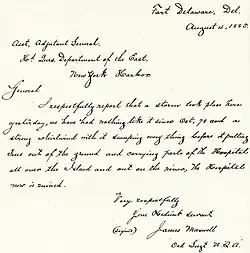 Fort Delaware, Del.
August 4, 1885.
Asst. Adjutant General.
Hd. Qrs. Department of the East.
New York Harbor
General
I respectfully report that a storm took place here
yesterday, we have had nothing like it since Oct. 78 and so
strong whirlwind with it sweeping every thing before it pulling
trees out of the ground and carrying parts of the Hospital
all over the Island and out on the river, the Hospital
now is ruined.
Very respectfully
Your Obedient servant
(Signed) James Maxwell
Ord Sergt U.S.A.